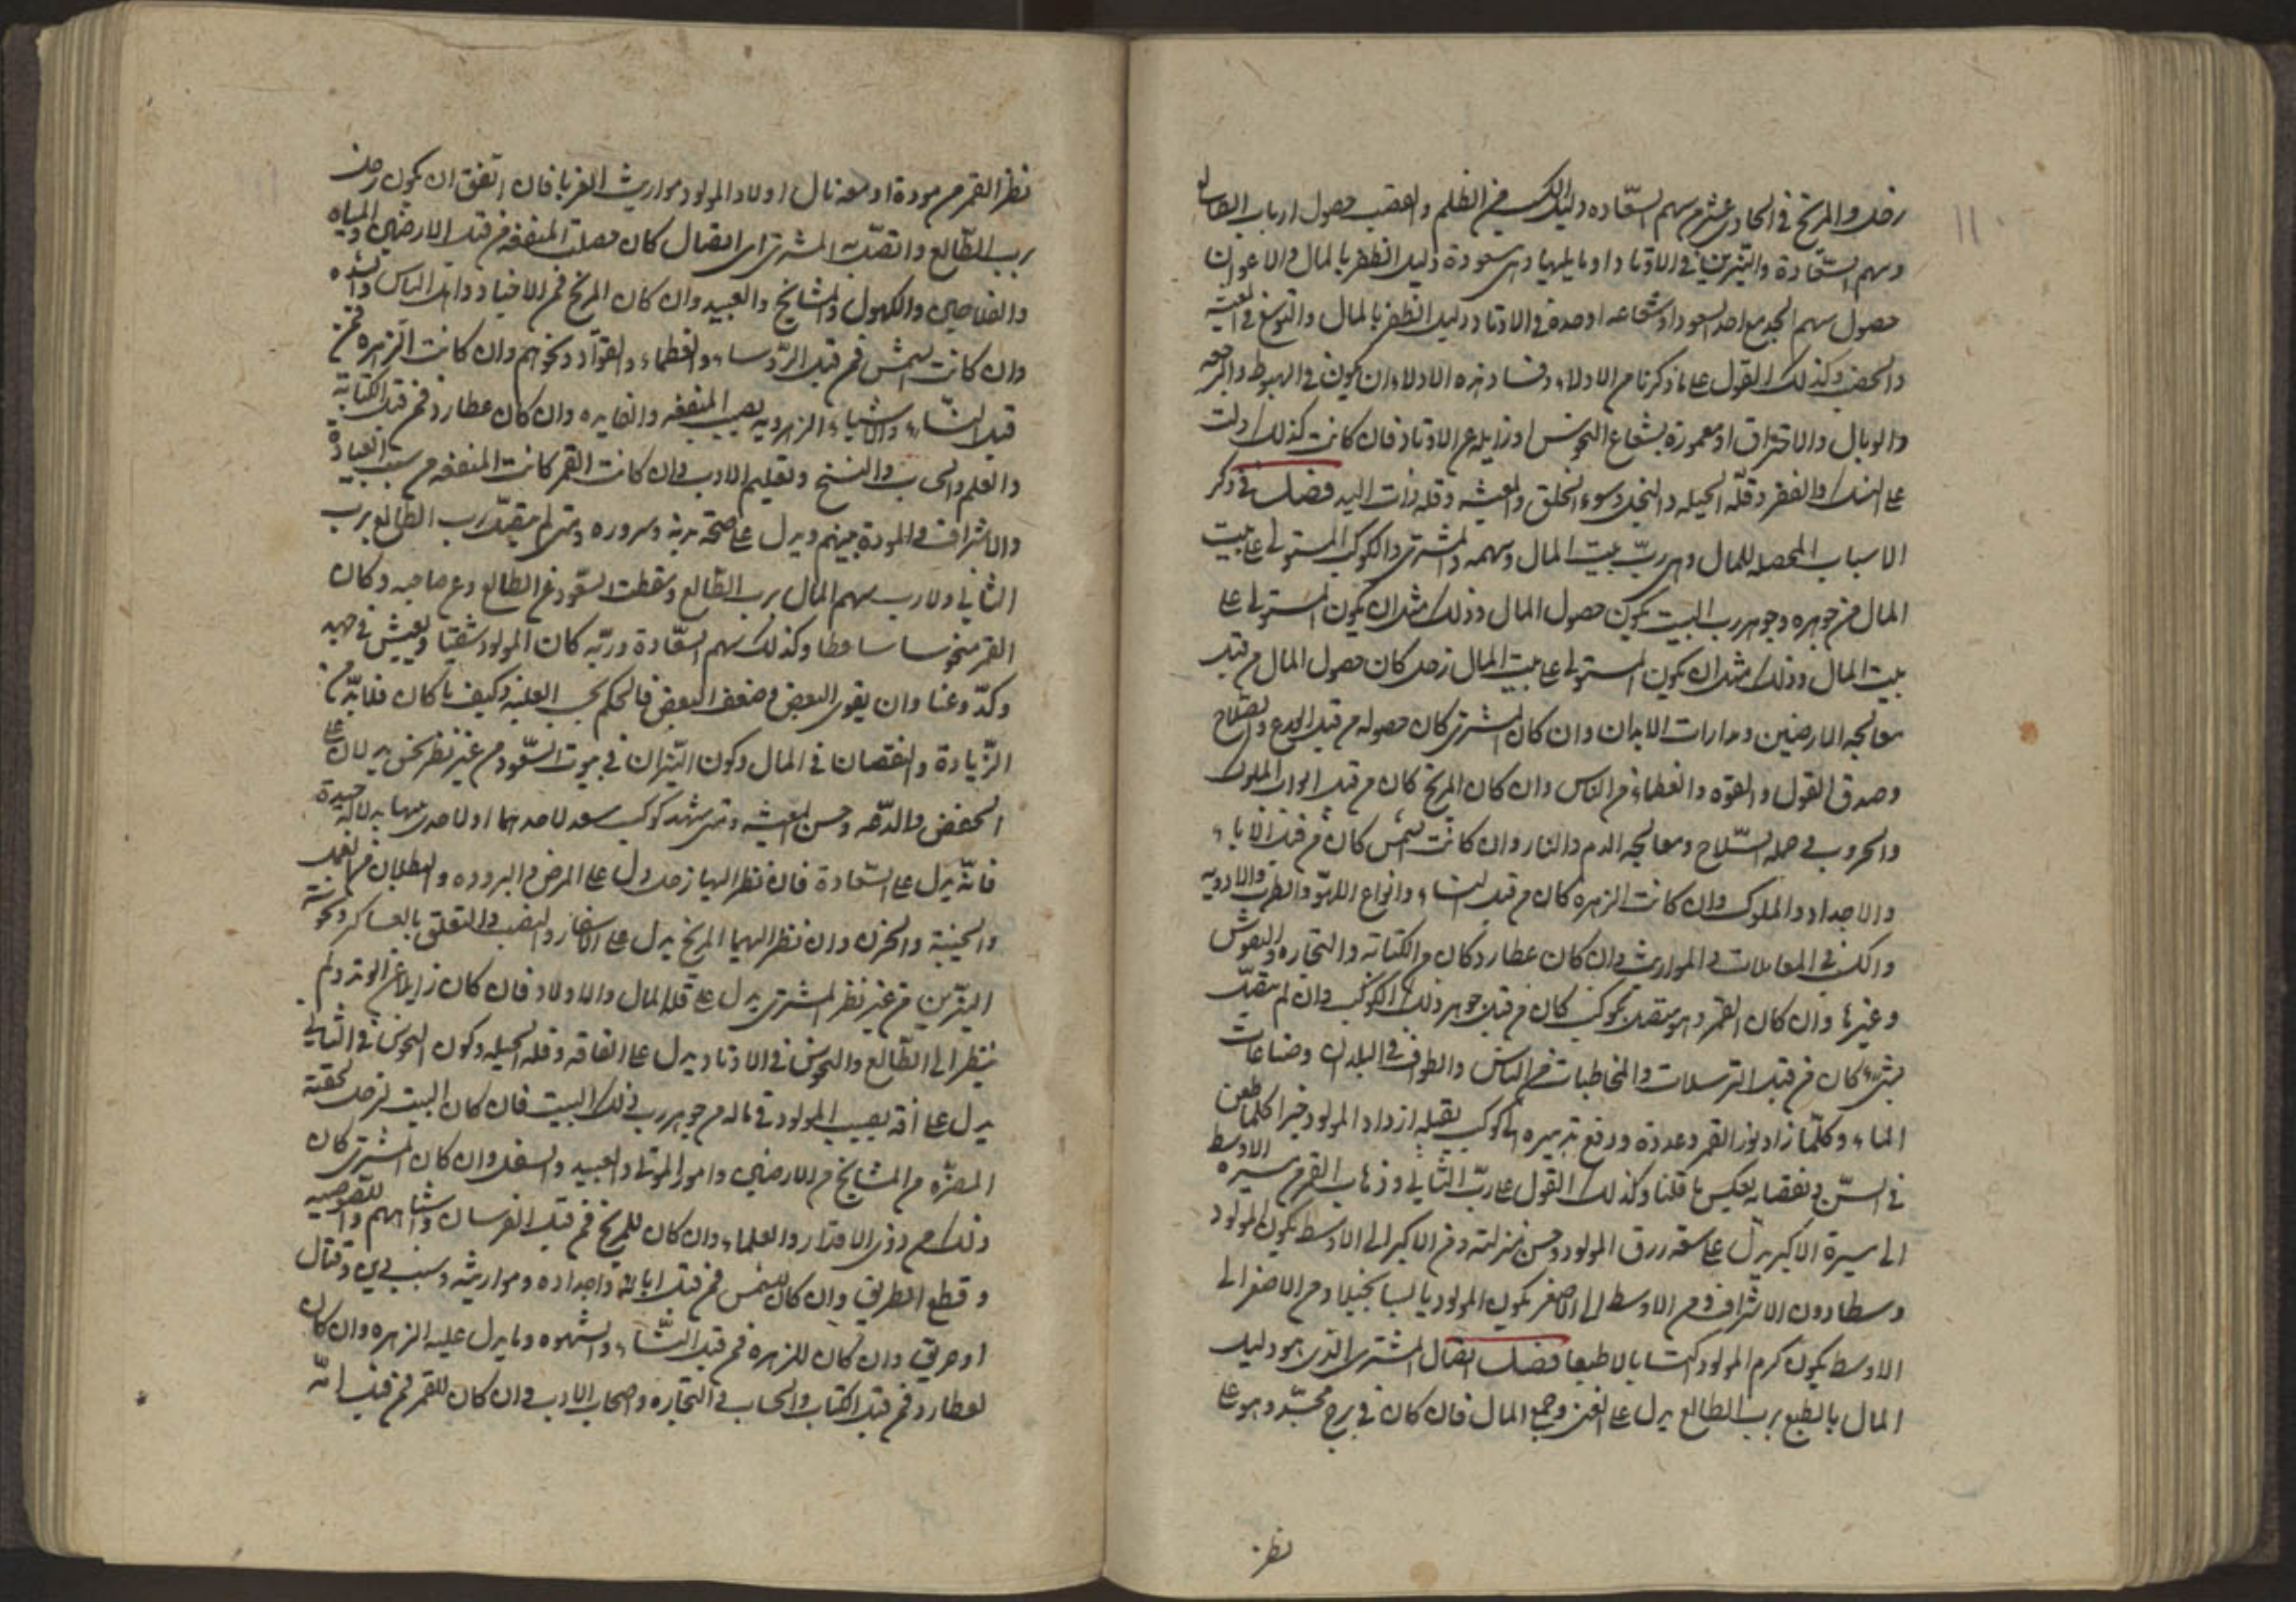 زحل والمريخ في الحادي عشر من سهم السعاده دليل الكسب من الظلم والغصب حصول ارباب الطالع
وسهم السعادة والنيرين في الاوتاد او ما يليها وهي مسعودة دليل الظفر بالمال والاعوان
حصول سهم الجد مع احد السعود او شعاعه او حده في الاوتاد دليل الظفر بالمال والتوسع في المعيشه
والخفض وكذلك القول على ما ذكرنا من الادلاء وفساد هذه الادلاء ان يكون في الهبوط والرجعه
والوبال والاحتراق او مغمورة بشعاع النحوس او زايله عن الاوتاد فان كانت كذلك دلت
على الضنك والفقر وقلة الحيله والبخل وسوء الخلق والمعيشه وقله ذات اليد فصل في ذكر
الاسباب المحصله للمال وهي رب بيت المال وسهمه والمشتري والكوكب المستولي على بيت
المال فمن جوهره وجوهر رب البيت يكون حصول المال وذلك مثل ان يكون المستولي على
بيت المال وذلك مثل ان يكون المستولي على بيت المال زحل كان حصول المال من قبل
معالجه الارضين ومدارات الابدان وان كان المشتري كان حصوله من قبل الورع والصلاح
وصدق القول والقوه والعظماء من الناس وان كان المريخ كان من قبل ابواب الملوك
والحروب في حمله السلاح ومعالجه الدم والنار وان كانت الشمس كان من قبل الاباء
والاجداد والملوك وان كانت الزهره كان من قبل النساء وانواع اللهو والطرب والادويه
والكسب في المعاملات في المواريث وان كان عطارد كان من الكتابه والتجاره والنقوش
وغيرها وان كان القمر وهو متصل بكوكب كان من قبل جوهر ذلك الكوكب وان لم يتصل
بشيء كان من قبل الترسلات والمخاطبات من الناس والطوف في البلدان وصناعات
الماء وكلما زاد نور القمر وعدده ودفع تدبيره الى كوكب يقبله ازداد المولود خيرا كلما طعن
في السن ونقصانه بعكس ما قلنا وكذلك القول على رب الثاني وذهاب القمر من مسيره الاوسط
الى مسيرة الاكبر يدل على سعه رزق المولود وحسن منزلته ومن الاكبر الى الاوسط يكون المولود
وسطا دون الاشراف ومن الاوسط الى الاصغر يكون المولود يابسا بخيلا ومن الاصغر الى
الاوسط يكون كرم المولود اكتسابا لا طبعا فصل اتصال المشتري الذي هو دليل
المال بالطبع برب الطالع يدل على الغنى وجمع المال فان كان في برج مجسد وهو على
نظر
نظر القمر من مودة او معه نال اولاد المولود مواريث الغربا فان اتفق ان يكون زحل
برب الطالع واتصل به المشتري اي اتصال كان حصلت المنفعه من قبل الارضين والمياه
والكهول والمشايخ والعبيد وان كان المريخ فمن الاجناد واهل الباس والشده
وان كانت الشمس فمن قبل الروساء والعظماء والقواد ونحوهم وان كانت الزهره فمن
قبل النساء والاشياء الزهرويه يصيب المنفعه والفايده وان كان عطارد فمن قبل الكتابة
والعلم والحساب والنسخ وتعليم الادب وان كانت القمر كانت المنفعه من سبب العبادة
والاشراف والمودة بينهم ويدل على صحة بدنه وسروره ومتى لم يتصل رب الطالع برب
الثاني ولا رب سهم المال برب الطالع وسقطت السعود عن الطالع وعن صاحبه وكان
القمر منحوسا ساقطا وكذلك سهم السعادة وربه كان المولود شقيا ويعيش في جهد
وكد وعنا وان يقوى البعض وضعف البعض فالحكم بحسب الغلبه وكيف ما كان فلا بد من
الزيادة والنقصان في المال وكون النيران في بيوت السعود من غير نظر نحس يدلان على
الخفض والدعه وحسن المعيشه ومتى شهد كوكب سعد لاحدهما او لاحدى بيتهما بدلالة جيدة
فانه يدل على السعادة فان نظر اليها زحل دل على المرض والبروده والبطلان من العمل
والخيبة والحزن وان نظر اليهما المريخ يدل على الاسفار والنصب والتعلق بالعساكر ونحوسة
النيرين من غير نظر المشتري يدل على قله المال والاولاد فان كان زايلا عن الوتد ولم
ينظر الى الطالع والنحوس في الاوتاد يدل على الفاقه وقله الحيله وكون النحوس في الثاني
يدل على افة يصيب المولود في ماله من جوهر رب ذلك البيت فان كان البيت لزحل لحقته
المضره من المشايخ من الارضين وامور الموتى والعبيد والسفل وان كان المشتري كان
ذلك من ذوي الاقدار والعلماء وان كان للمريخ فمن قبل الفرسان واشباههم واللصوصيه
وقطع الطريق وان كان للشمس فمن قبل ابائه واجداده ومواريثه وبسبب دين وقتال
او حريق وان كان للزهرة فمن قبل النساء والشهوه وما يدل عليه الزهره وان كان
لعطارد فمن قبل الكتاب والحساب والتجاره واصحاب الادب وان كان للقمر فمن قبل امه